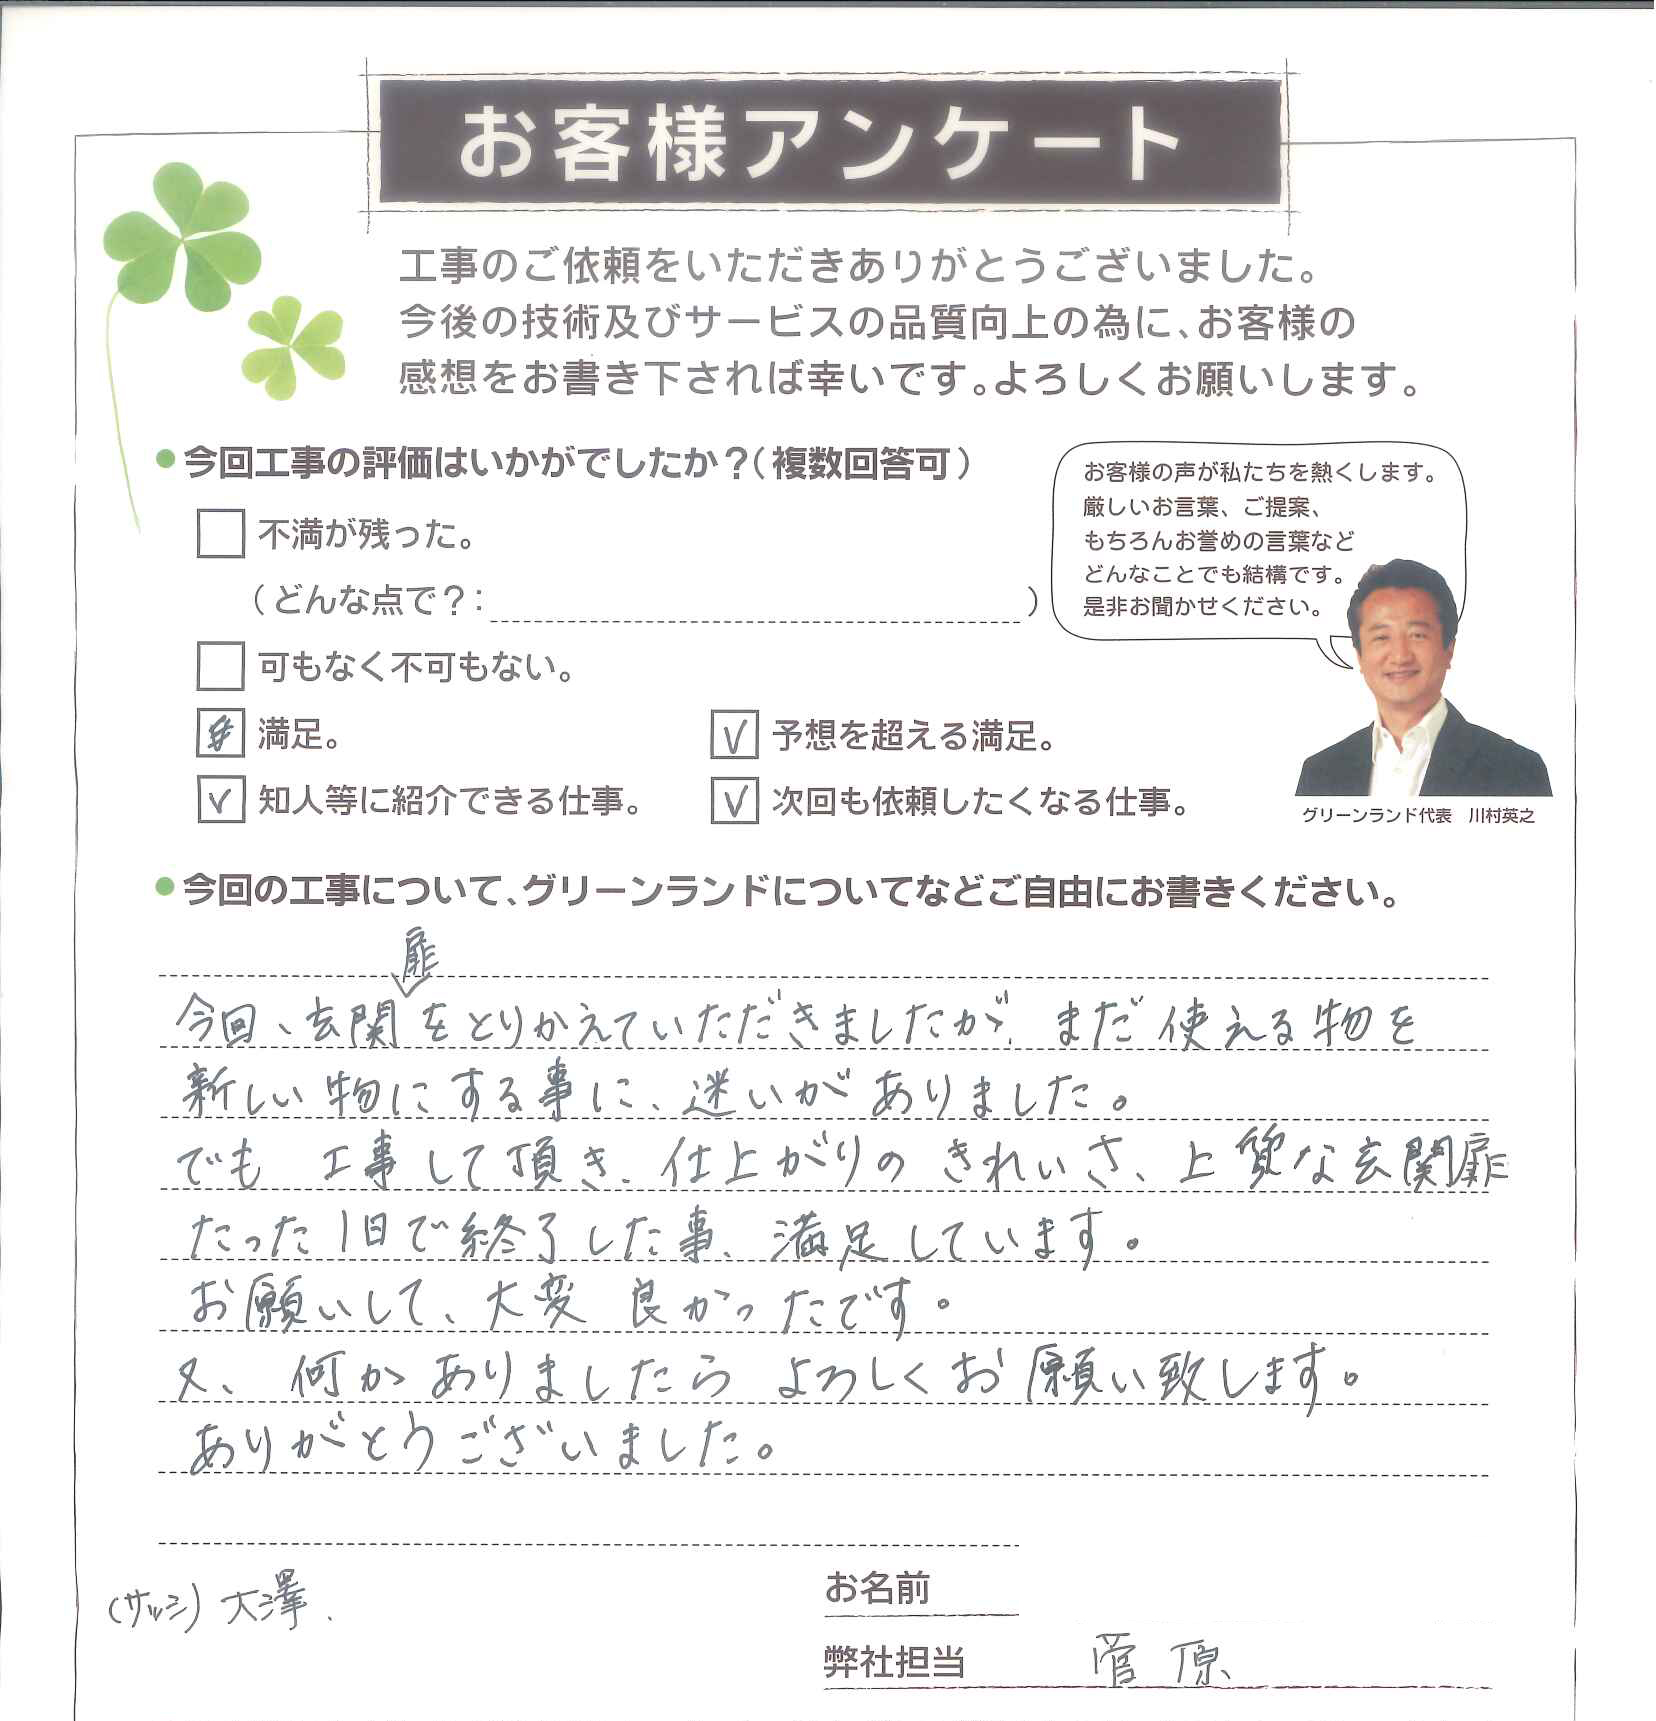 お客様アンケート
工事のご依頼をいただきありがとうございました。
今後の技術及びサービスの品質向上の為に、お客様の
感想をお書き下されば幸いです。よろしくお願いします。
今回工事の評価はいかがでしたか？（複数回答可）
不満が残った。
（どんな点で？：　）
可もなく不可もない。
満足。
予想を超える満足。
知人等に紹介できる仕事。
次回も依頼したくなる仕事。
お客様の声が私たちを熱くします。
厳しいお言葉、ご提案、
もちろんお誉めの言葉など
どんなことでも結構です。
是非お聞かせください。
グリーンランド代表　川村英之
今回の工事について、グリーンランドについてなどご自由にお書きください。
今回、玄関扉をとりかえていただきましたが、まだ使える物を
新しい物にする事に、迷いがありました。
でも 工事して頂き、仕上がりの きれいさ、上質な玄関扉
たった1日で終了した事、満足しています。
お願いして、大変 良かったです。
又、何かありましたら よろしくお願い致します。
ありがとうございました。
(サッシ) 大澤.
お名前
弊社担当　菅原